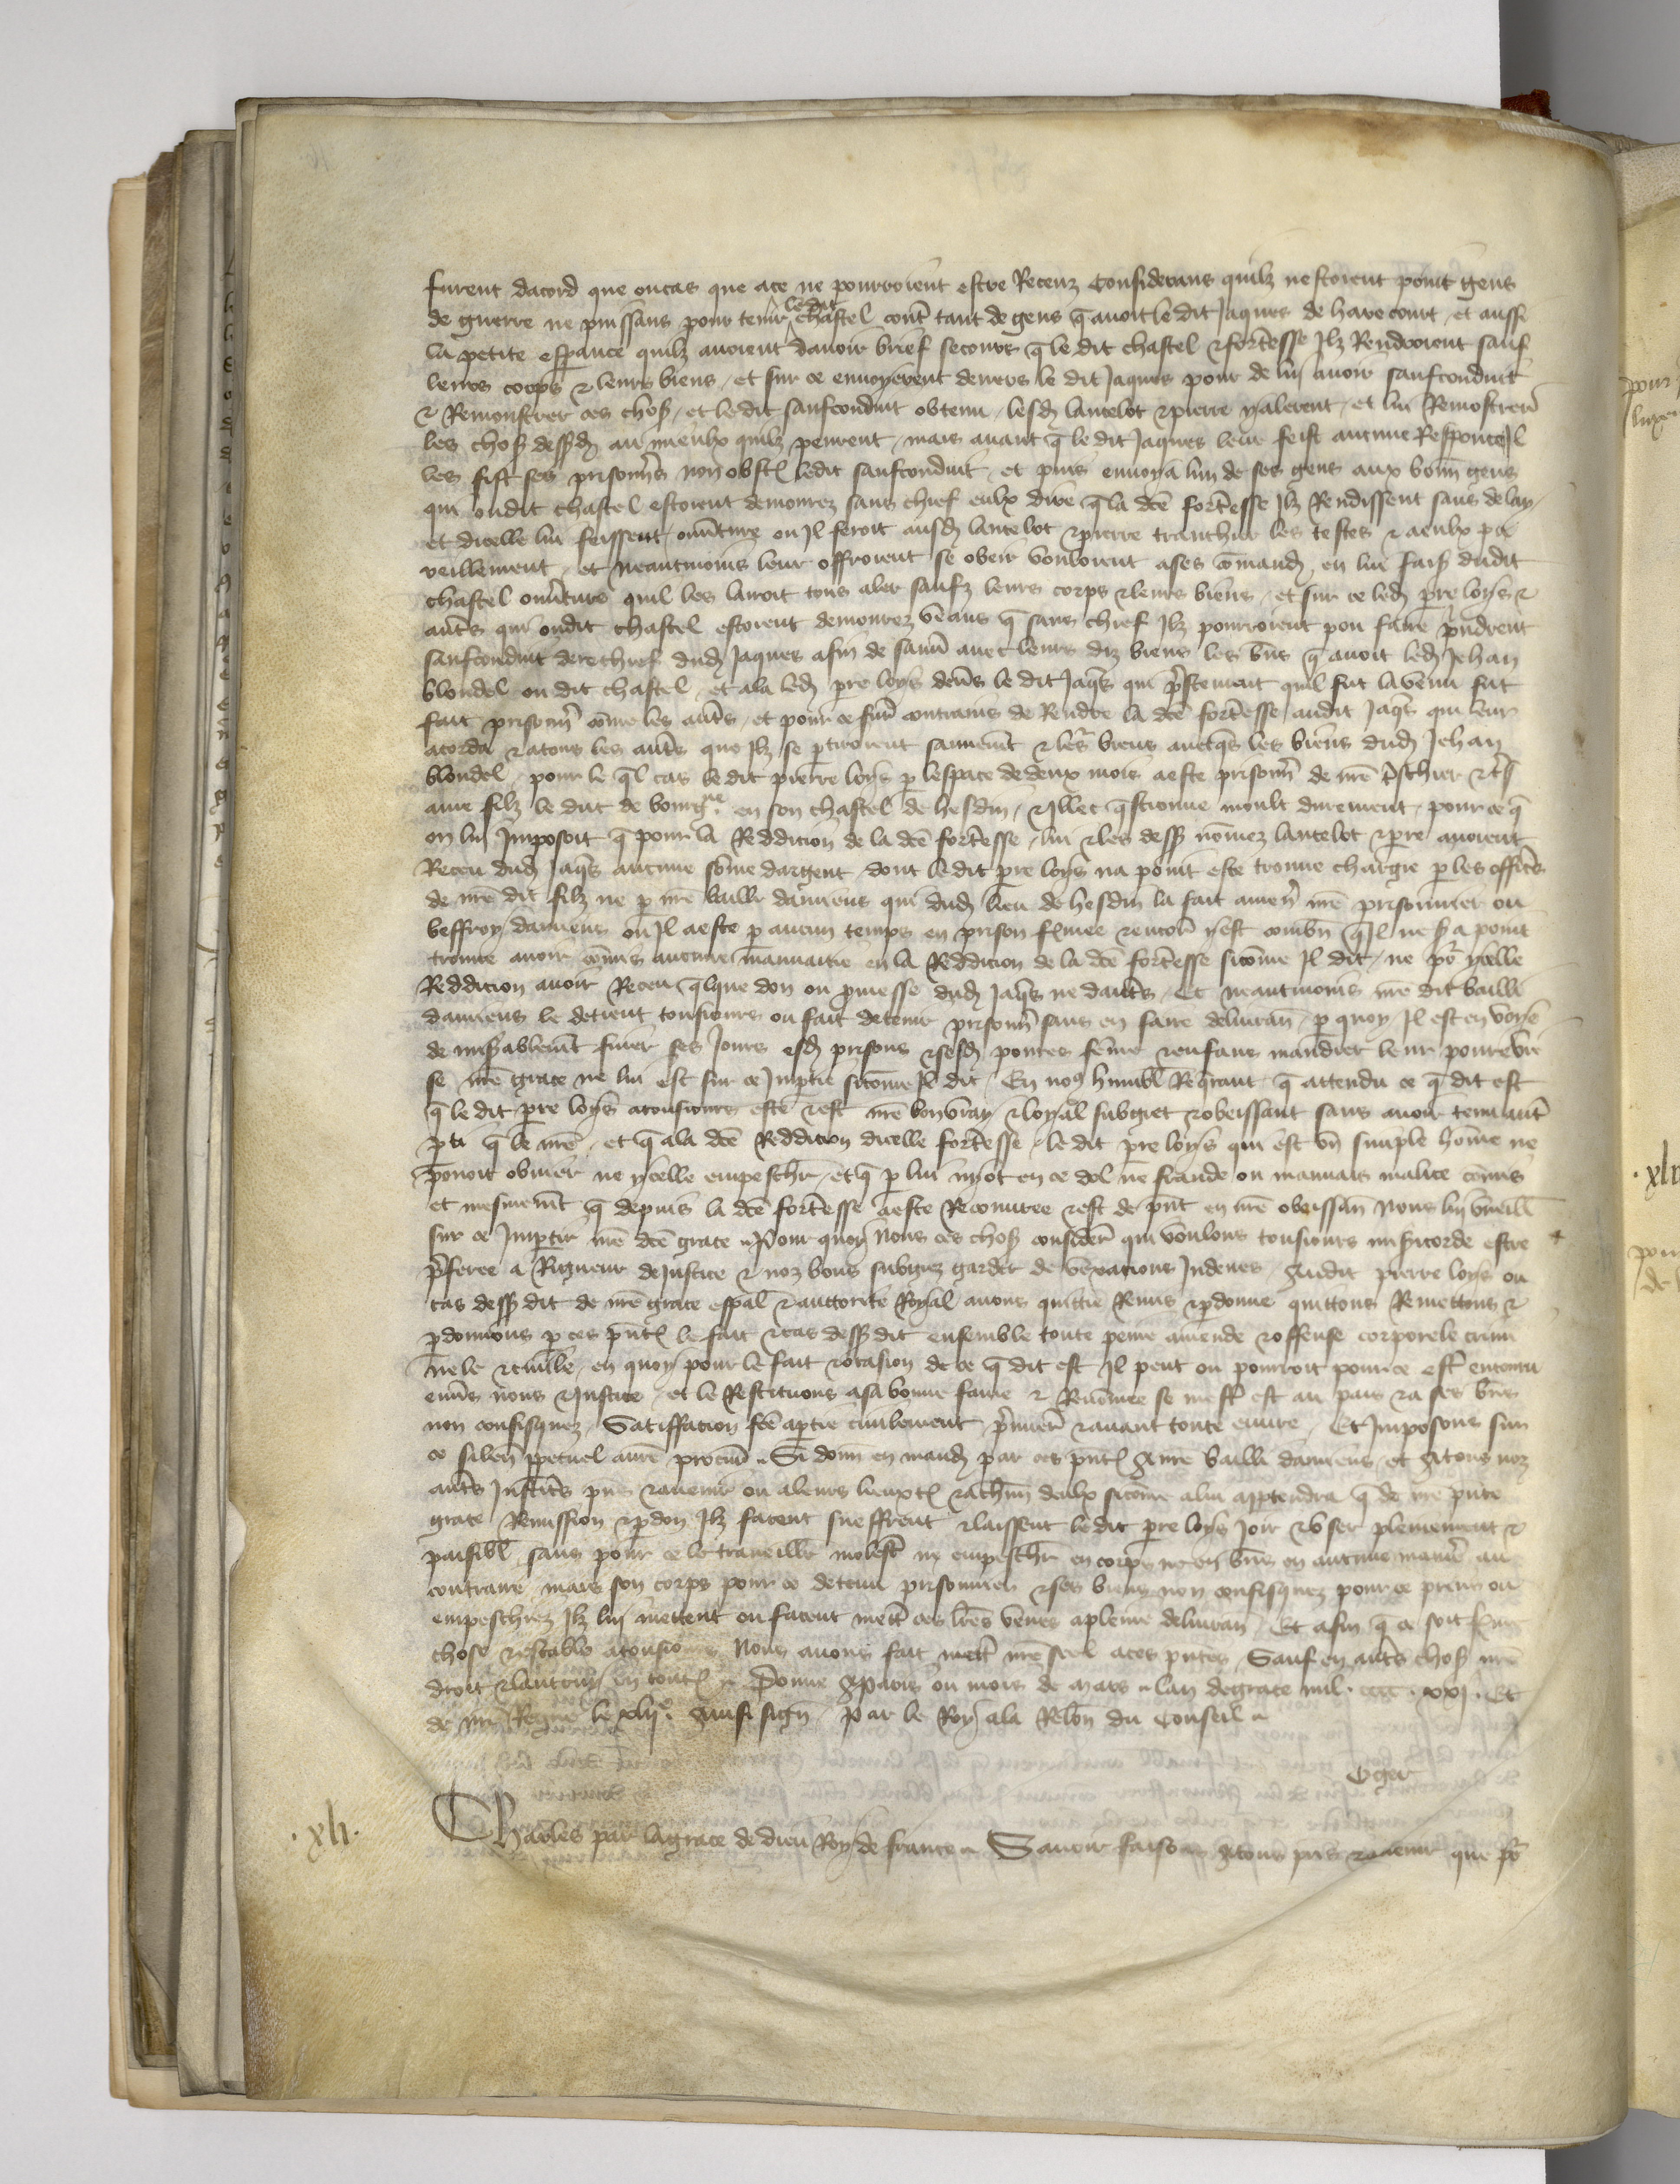 furent dacord que oucas que ace ne pourroient estre Receuz Considerans quilz nestoient point gens
de guerre ne puissans pour tenir ledit chastel cont̃ tant de gens q̃ auoit le dit Jaques de harecourt et aussi
la petite esp̃ance quilz auoient dauoir brief secours q̃ le dit chastel ⁊ fort̃esse Jlz Rendroient sauf
leurs corps ⁊ leurs biens / et sur ce enuoyerent deuers le dit Jaques pour de lui auoir saufconduit
⁊ Remonstrer ces choses / et ledit saufconduit obtenu / lesd̃ lancelot ⁊ pierre y alerent / et lui Remostrer̃
les choses dessusd̃ au mieulx quilz peurent / mais auant q̃ le dit Jaques leur feist aucune Responce Jl
les fist ses prisonñs non obst̃ ledit saufconduit / et puis enuoya lun de ses gens aux bonñ gens
qui oudit chastel estoient demourez sans chief eulx dire q̃ la dc̃e fort̃esse Jlz Rendissent sans delay
et dicelle lui feissent ouũture ou Jl feroit ausd̃ lancelot ⁊ pierre trancher les testes ⁊ a eulx pa
reillement / et neantmoins leur offroient se obeir vouloient a ses cõmand̃ en lui fais̃ dudit
chastel ouũture quil les lairoit tous aler saufz leurs corps ⁊ leurs biens / et sur ce led̃ pr̃e loys ⁊
aut̃s qui oudit chastel estoient demourez veans q̃ sans chief Jlz pourroient pou faire prĩdrent
saufconduit derechief dud̃ Jaques afin de sauũ auec leurs diz biens les bñs q̃ auoit led̃ Jehan
blondel ou dit chastel / et ala led̃ pr̃e loys deũs le dit Jaq̃s qui pr̃stement quil fut la venu fut
fait prisonñ cõme les aut̃s / et pour ce fur̃ contrains de Rendre la dc̃e fort̃esse audit Jaq̃s qui leur
acorda ⁊ a tous les aut̃s que Jlz se p̃tiroient sauuem̃t ⁊ les̃ biens auecq̃s les biens dud̃ Jehan
blondel / pour le q̃l cas le dit pierre loys p̃ lespace de deux mois a este prisonñ de nr̃e t̃schier ⁊ t̃s
ame filz le duc de bourgne en son chastel de hesdin / ⁊ Jllec q̃stionne moult durement / pour ce q̃
on lui Jmposoit q̃ pour la Reddicion de la dc̃e fort̃esse / lui ⁊ les dess̃ nõmez lancelot ⁊ pr̃e auoient
Receu dud̃ Jaq̃s aucune sõme dargent / dont le dit pr̃e loys na point este trouue chargie p̃ les offic̃s
de nr̃e dit filz ne p̃ nr̃e bailli damiens qui dud̃ lieu de hesdin la fait ameñ nr̃e prisonnier ou
beffroy damiens ou Jl a este p̃ aucun temps en prison f̃mee ⁊ encor̃ y est combñ q̃ Jl ne sa point
trouue auoir cõmis aucune mauuaitie en la Reddicion de la dc̃e fort̃esse sicõme Jl dit / ne por̃ ycelle
Reddicion auoir Receu q̃lque don ou p̃messe dud̃ Jaq̃s ne daut̃s / Et neantmoins nr̃e dit bailli
damiens le detient tousiours ou fait detenir prisonñ sans en faire deliuran̄ / p̃ quoy Jl est en voye
de mis̃ablem̃t finer ses Jours esd̃ prisons ⁊ sesd̃ poures fẽme ⁊ enfans mandier leur pourevie
se nr̃e grace ne lui est sur ce Jmp̃tie sicõme Jl dit / En no9 humbl̃ Req̃rant q̃ attendu ce q̃ dit est
q̃ le dit pr̃e loys a tousiours este ⁊ est nr̃e bon vray ⁊ loyal subgiet ⁊ obeissant sans auoir tenu aut̃
p̃ti q̃ le nr̃e / et q̃ a la dc̃e Reddicion dicelle fort̃esse / le dit pr̃e loys qui est vñ simple hõme ne
pouoit obuier ne ycelle empeschr̃ / et q̃ p̃ lui ny ot en ce dol ne fraude ou mauuais malice cõmis
et mesmem̃t q̃ depuis la dc̃e fort̃esse a este Recouuree ⁊ est de pñt en nr̃e obeissan̄ Nous lui vueill̃
sur ce Jmp̃tir nr̃e dc̃e grace // Pour quoy Nous ces choses consider̃ qui voulons tousiours mis̃icorde estre
p̃feree a Rigueur de Justice ⁊ noz bons subgiez garder de vexacions Jndeues / Audit pierre loys ou
cas dess̃ dit de nr̃e grace esp̃al ⁊ auctorite Royal auons quittie Remis ⁊ p̃donne quittons Remettons ⁊
p̃donnons p̃ ces pñt̃ le fait ⁊ cas dess̃ dit ensemble toute peine amende ⁊ offense corporele crimi
nele ⁊ ciuile / en quoy pour le fait ⁊ ocasion de ce q̃ dit est Jl peut ou pourroit pour ce est̃ encouru
enũs nous ⁊ Justice / et le Restituons a sa bonne fame ⁊ Renõmee se mest̃ est au pais ⁊ a ses bñs
non confisquez / Satiffacion fc̃e a p̃tie ciuilement premier̃ ⁊ auant toute euure / Et Jmposons sur
ce silen̄ p̃petuel a nr̃e procur̃ // Si donn̄ en mand̃ par ces pñt̃ A nr̃e bailli damiens / et A tous noz
aut̃s Justic̃s pñs ⁊ auenir ou a leurs lieuxt̃ ⁊ a chũn deulx sicõme a lui app̃tendra q̃ de nr̃e pñte
grace Remission ⁊ p̃don Jlz facent sueffrent ⁊ laissent ledit pr̃e loys Joir ⁊ vser plenement ⁊
paisibl̃ sans pour ce le traueillr̃ molest̃ ne empeschr̃ en corps ne en bñs en aucune manier̃ au
contraire / mais son corps pour ce detenu prisonnier ⁊ ses biens non confisquez pour ce prins ou
empeschiez Jlz lui mettent ou facent mett̃ ces lr̃es veues a pleine deliuran̄ / Et afin q̃ ce soit f̃me
chose ⁊ estable a tousiours Nous auons fait mett̃ nr̃e seel a ces pñtes / Sauf en aut̃s choses nr̃e
droit ⁊ lautruy en tout̃ // Donne A paris ou mois de mars // lan de grace mil. cccc. xxj. Et
de nr̃e Regne le xlij.e Ainsi signe / Par le Roy a la Relõn du Conseil //
Oger
.xli.
Charles par la grace de dieu Roy de france // Sauoir faisons A tous pñs ⁊ auenir que por̃